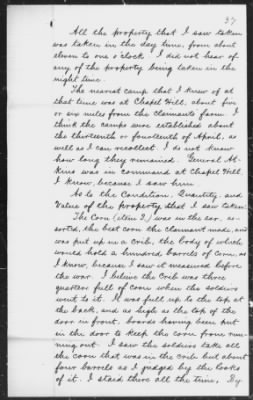 37
All the property that I saw taken
was taken in the day time, from about
eleven to one o'clock. I did not hear of
any of the property being taken in the
night time.
The nearest camp that I knew of at
that time was at Chapel Hill, about five
or six miles from the claimants farm. I
think the camps were established about
the thirteenth or fourteenth of April, as
well as I can recollect. I do not know
how long they remained. General At-
kins was in command at Chapel Hill,
I know, because I saw him.
As to the Condition, Quantity, and
Value of the property that I saw taken.
The Corn (item 2,) was in the ear, as-
sorted, the best corn the claimant made, and
was put up in a crib, the body of which
would hold a hundred barrels of corn, as
I know, because I saw it measured before
the war. I believe the Crib was three
quarters full of corn when the soldiers
went to it. It was full up to the top at
the back, and as high as the top of the
door in front, boards having been put
in the door to keep the corn from run-
ning out. I saw the soldiers take all
the corn that was in the crib but about
four barrels as I judged by the looks
of it. I staid there all the time. By